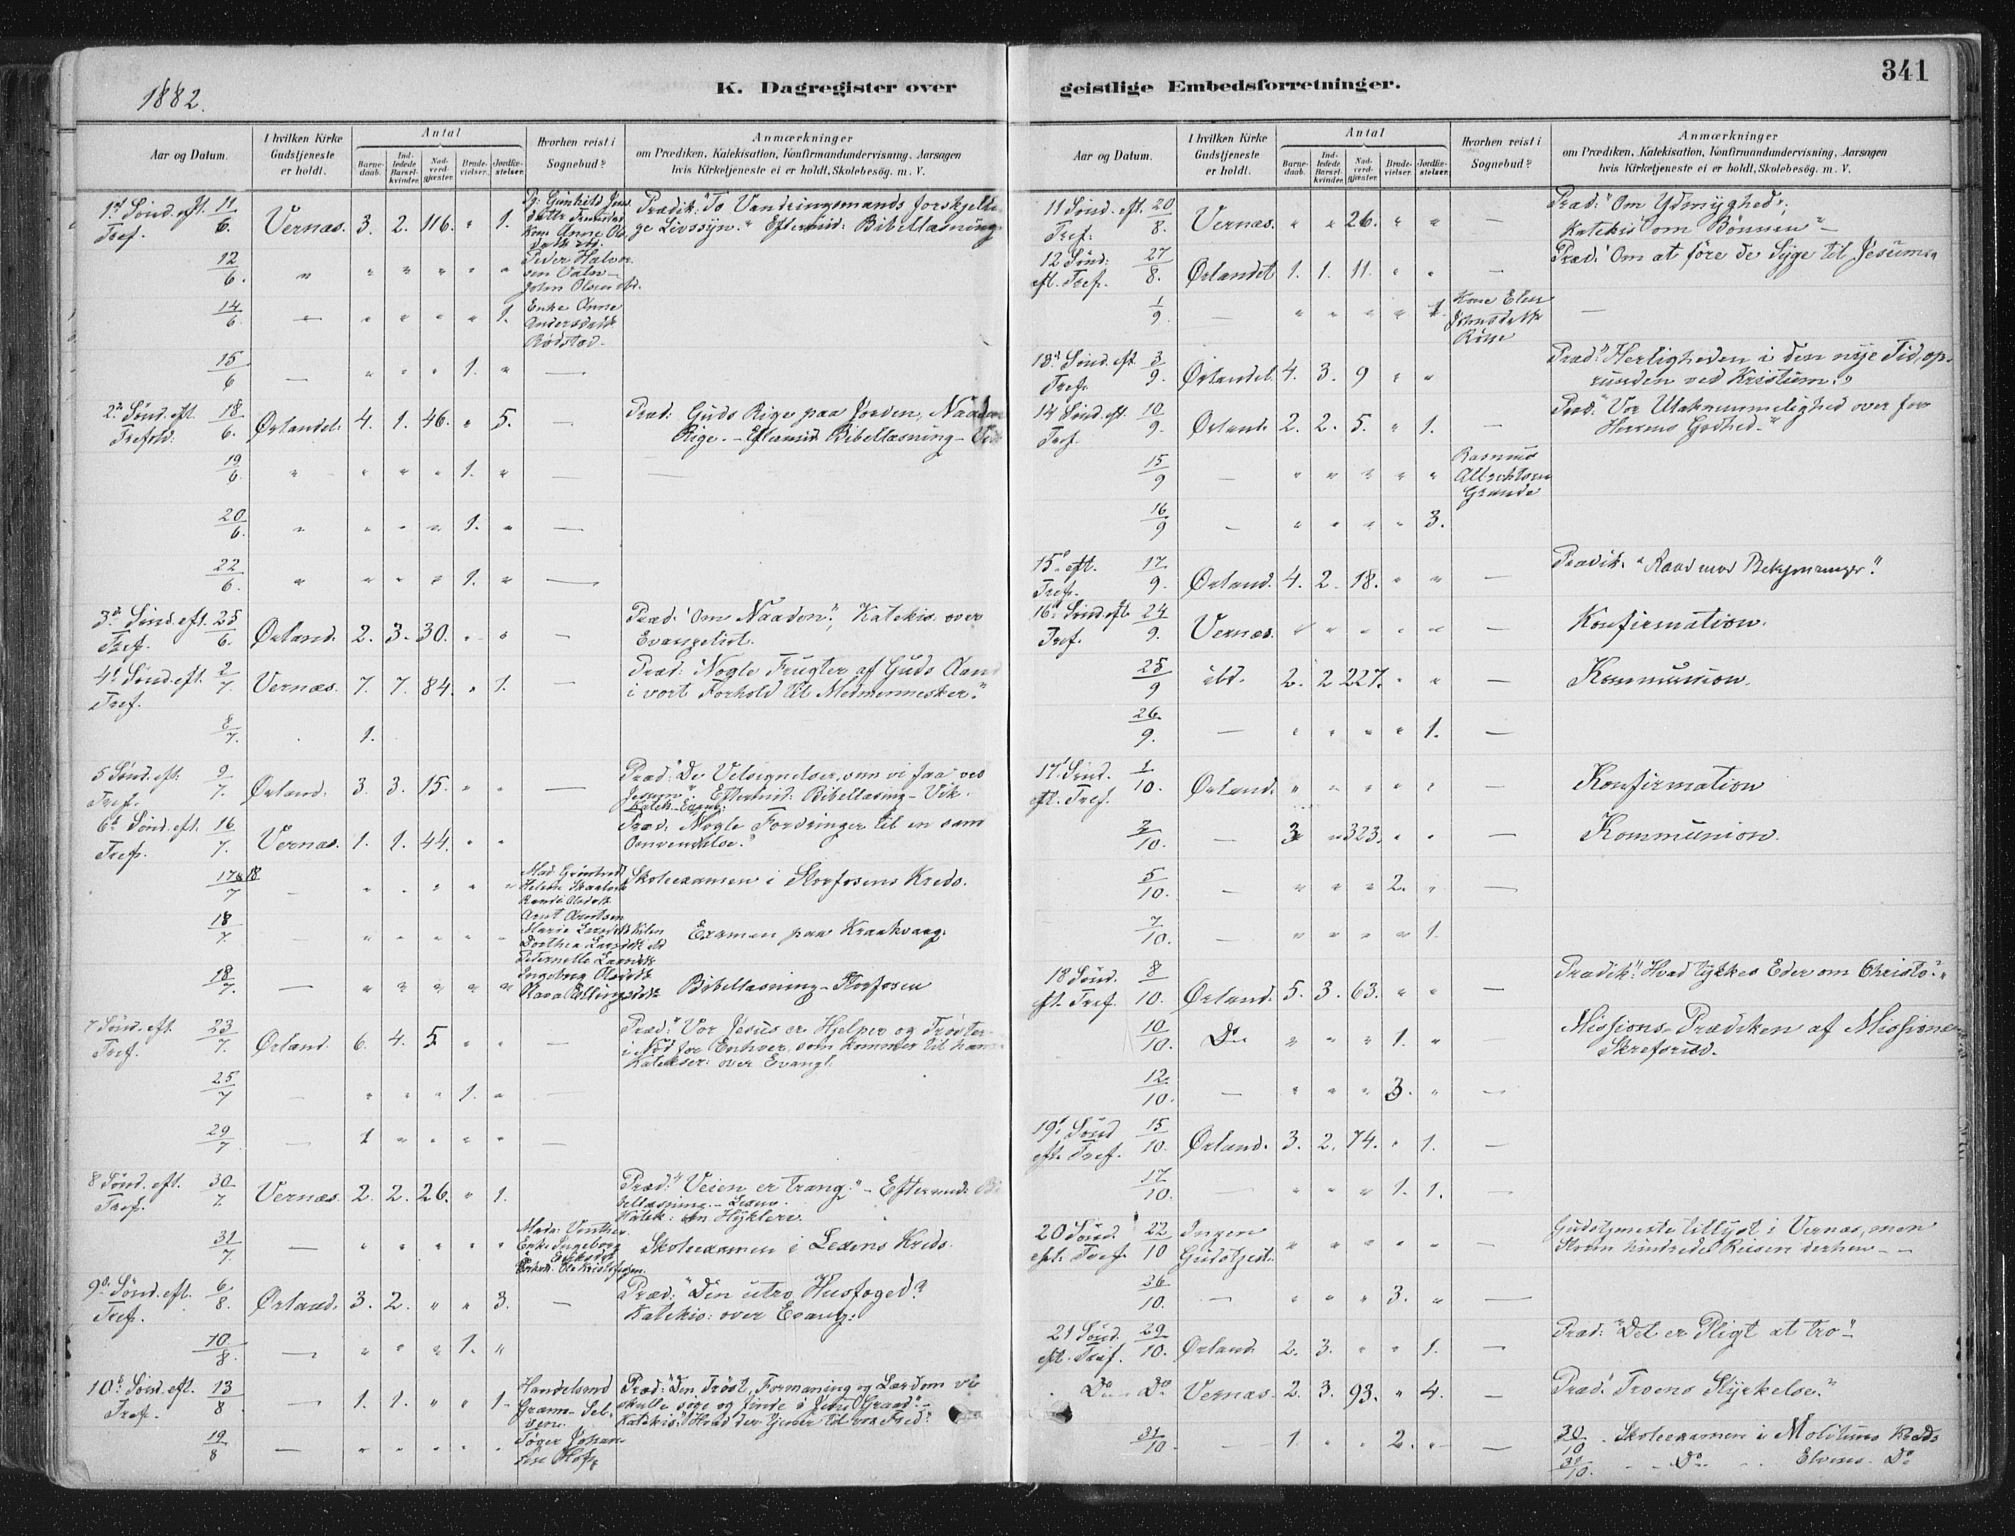 1882.
K. Dagregister over
Aar og Datum.
I hvilken Kirke Gudstjeneste er holdt.
Antal
Barne-daab.
Ind-ledede Barsel-kvinder.
Nad-verd-gjæster.
Brude-vielser.
Jordfæ-stelser.
Hvorhen reist i Sognebud?
Anmærkninger
om Prædiken, Katekisation, Konfirmandundervisning, Aarsagen
hvis Kirketjeneste ei er holdt, Skolebesøg. m. V.
1ste Sønd. eft. Tref. 11/6. Vernæs. 3. 2. 116. " 1. Prædik: "To Vandringsmands forskjelli-
ge Livssyn." Eftermid: Bibellæsning
12/6. " " " " " " Peder Halvor-
sen
John Olsen
14/6. — " " " " 1. Enke Anne
Andersdatt.
Rødstad.
15/6 — " " " 1. " —
2den Sønd. eft. Trefold. 18/6. Ørlandet. 4. 1. 46. " 5. — Præd: Guds Rige paa Jorden, Naaden
Rige. – Eftermid. Bibellæsning –
19/6. " " " " 1. " — —
20/6. " " " " 1. " —
22/6. " " " " 1. " —
3die Sønd. eft. Tref. 25/6. Ørland. 2. 3. 30. " " — Præd: "Om Naaden", Katekis. over
Evangeliet.
4de Sønd. eft. Tref. 2/7. Vernæs. 7. 7. 84. " 1. — Præd: "Nogle Frugter af Guds Aand
i vort Forhold til Medmennesker."
8/7. 1.
5 Sønd. eft. Tref. 9/7. Ørland. 3. 3. 15. " " — Præd: "De Velsignelser, som vi faa ved
Jesum". Eftermid: Bibellæsing – Vik.
Katek. Evang:
6te Sønd. eft. Tref. 16/7. Vernæs. 1. 1. 44. " " Præd. "Nogle Fordringer til en sam
Omvendelse."
17 & 18/7 — " " " " " Skoleexamen i Storfosens Kreds.
18/7. — " " " " " Arnt Arntsen
Examen paa Kraakvaag.
18/7. — " " " " " Ingeborg Olsdatt.
Bibellæsning – Storfosen
7 Sønd. eft. Tref. 23/7. Ørland. 6. 4. 5 " " — Præd: "Vor Jesus er Hjelper og Trøster
i Nød for Enhver, som kommer til ham
Katekser: over Evangl.
25/7 — " " " 1. " —
29/7 — 1 " " " " —
8 Sønd. eft. Tref. 30/7. Vernæs. 2. 2. 26. " 1. Præd: "Veien er trang." – Eftermid. Bi
bellæsning – Lexen.
Katek: An Hyklere.
31/7. — " " " " " Enke Ingeborg
Skoleexamen i Lexens Kreds
9de Sønd. eft. Tref. 6/8. Ørland. 3. 2. " " 3. — Præd: "Den utro Husfoged."
Katekis: over Evang:
10/8. — " " " 1. "
10de Sønd. eft. Tref. 13/8 — 1. 1. " " 1. Handelsmd
Præd: "Den Trøst, Formaning og Lærdom vi
skulle søge og finde i Jesu Graad."
Katekis: "Hvad der tjener til vor Fred".
19/8 — " " " " " Tøger Johan-
sen Hof,
341
geistlige Embedsforretninger.
Aar og Datum.
I hvilken Kirke Gudstjeneste er holdt.
Antal
Barne-daab.
Ind-ledede Barsel-kvinder.
Nad-verd-gjæster.
Brude-vielser.
Jordfæ-stelser.
Hvorhen reist i Sognebud?
Anmærkninger
om Prædiken, Katekisation, Konfirmandundervisning, Aarsagen
hvis Kirketjeneste ei er holdt, Skolebesøg. m. V.
11 Sønd. eft. Tref. 20/8. Vernæs. " " 26. " " — Præd: "Om Ydmyghed",
Katekis "om Bønnen" –
12 Sønd: eft. Tref. 27/8. Ørlandet 1. 1. 11. " " — Præd: "Om at føre de Syge til Jesum"
1/9. — " " " " 1. Kone Elen
Johnsdatt. —
13de Sønd. eft. Tref. 3/9. Ørlandet. 4. 3. 9 " " Præd: "Herligheden i den nye Tid, op-
runden ved Kristum."
14 Sønd. eft. Tref. 10/9. Ørland. 2. 2. 5. " 1. — Præd: "Vor Utaknemmelighed over for
Herrens Godhed –"
15/9 — " " " " " Rasmus
Albrektsen
Grande
16/9 — " " " " 3.
15de eft. Tref. 17/9. Ørland. 4. 2. 18. " " — Prædik: "Raad mod Bekymringer."
16de Sønd. eft. Tref. 24/9. Vernæs. " " " " " — Konfirmation.
25/9 ibd. 2. 2 227. " " — Kommunion.
26/9. — " " " " 1. —
17de Sønd. eft. Tref. 1/10. Ørland. " " " " " — Konfirmation
2/10. — 3 " 323. " " — Kommunion.
5/10. — " " " 2. " —
7/10. — " " " " 1.
18 Sønd. eft. Tref. 8/10. Ørland. 5. 3. 63. " " — Prædik: "Hvad tykkes Eder om Christo?"
10/10. Do " " " 1. " — Missions-Prædiken af Missionær
Skrefsrud.
12/10. — " " " 3. " —
19de Sønd eft. Tref. 15/10. Ørland. 3. 2. 74. " 1. —
17/10. — " " " 1. 1. —
20 Sønd. eft. Tref. 22/10 Ingen Gudstjest. " " " " " — Gudstjeneste tillyst i Vernæs, men
Storm hindrede Reisen derhen – –
26/10. — " " " 3. " —
21 Sønd. eft. Tref. 29/10. Ørland 2. 3. " " 1. — Præd: "Det er Pligt at tro"
Do Do Vernæs. 2. 3. 93. " 4. — Præd: "Troens Styrkelse."
31/10. — 1. " " 2. " — 30/10. Skoleexamen i Kreds
31/10. – – Do – – Do